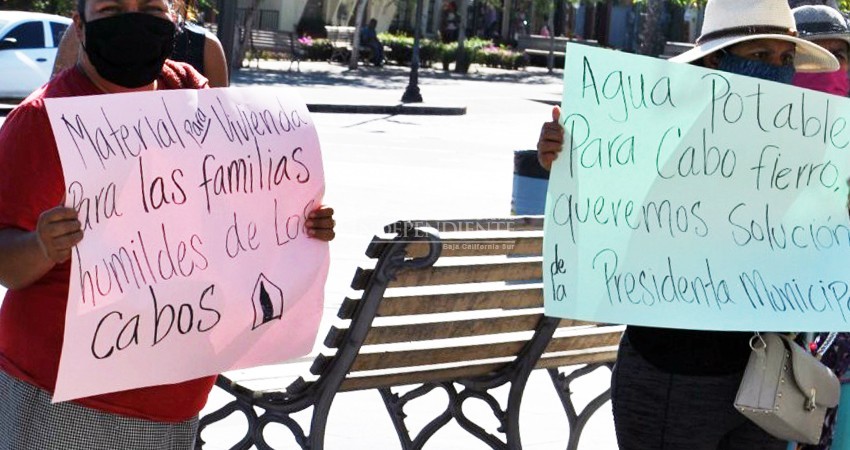 Material para Vivienda
Para las familias
humildes de Los
Cabos
Agua Potable
Para Cabo fierro,
queremos Solución
de la Presidenta Municipa
DEPENDIENTE
Baja California Sur